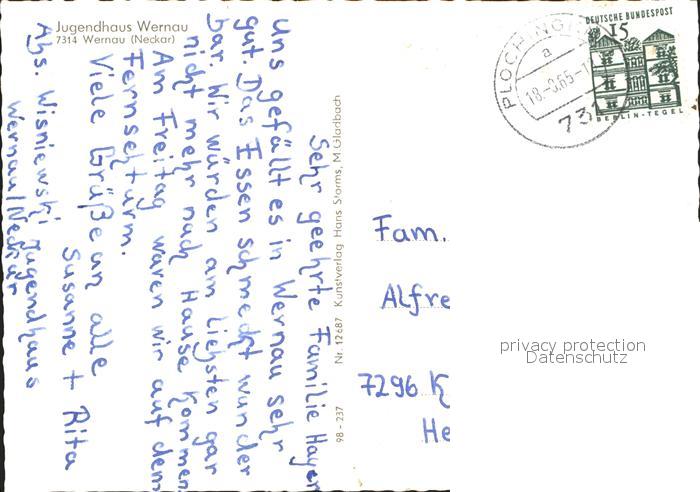 Jugendhaus Wernau
7314 Wernau (Neckar)
Sehr geehrte Familie Hayer
uns gefällt es in Wernau sehr
gut. Das Essen schmeckt wunder
bar. Wir würden am liebsten gar
nicht mehr nach Hause kommen.
Am Freitag waren wir auf dem
Fernsehturm.
Viele Grüße an alle
Susanne + Rita
Abs. Wisniewski Jugendhaus
Wernau/Neckar
98 - 237 Nr. 12687 Kunstverlag Hans Storms, M.Gladbach
DEUTSCHE BUNDESPOST
15
BERLIN-TEGEL
PLOCHINGEN
a
73
Fam.
Alfre
7296 K
He
privacy protection
Datenschutz